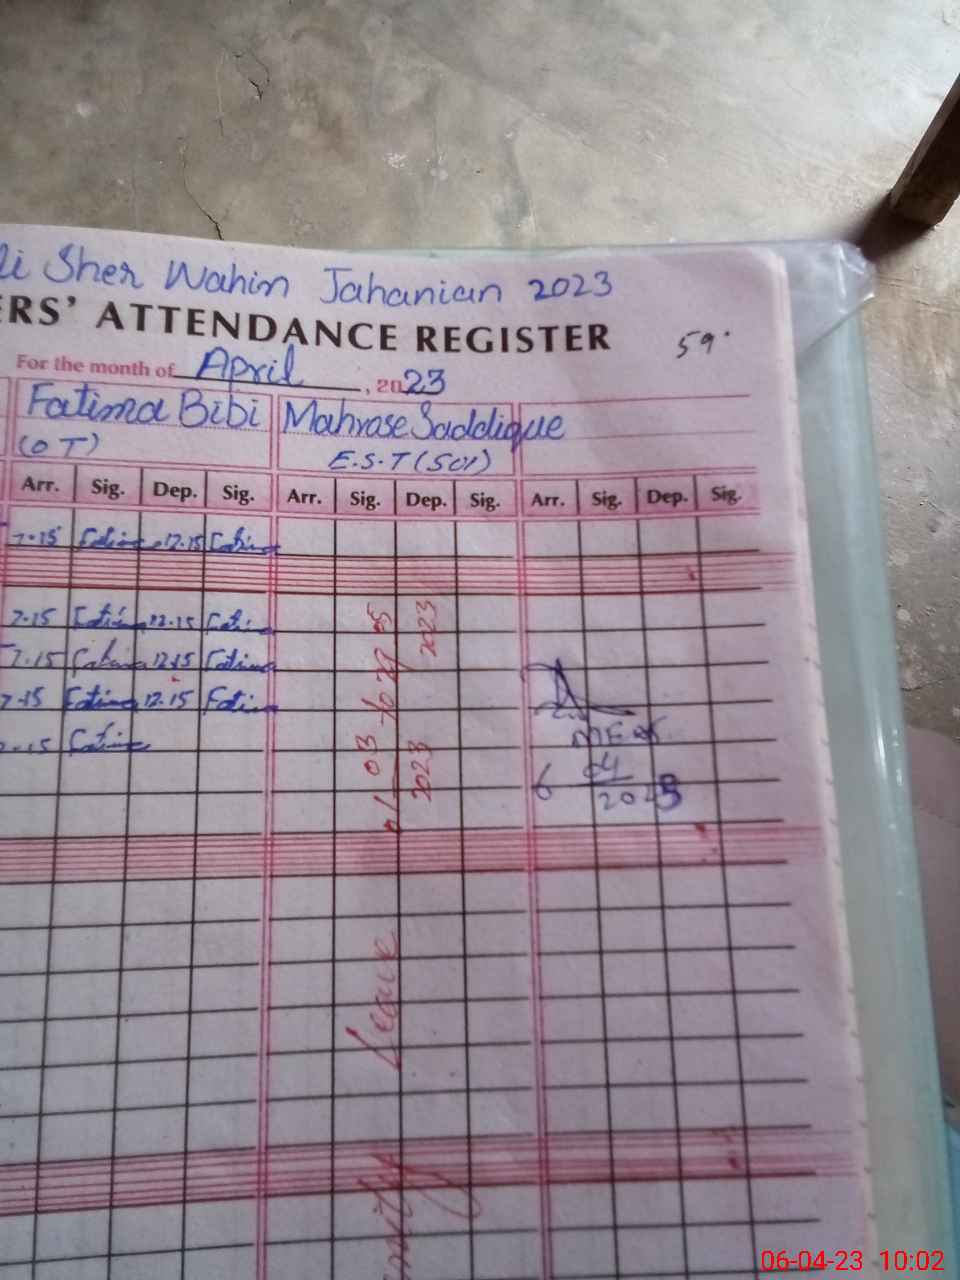 li Sher Wahin Jahanian 2023
ERS' ATTENDANCE REGISTER
59
For the month of April, 2023
Fatima Bibi Mahrose Saddique
(O T) E.S.T (Sci)
Arr. Sig. Dep. Sig. Arr. Sig. Dep. Sig. Arr. Sig. Dep. Sig.
7.15 Fatima 12.15 Fatima
7.15 Fatima 12.15 Fatima
7.15 Fatima 12.15 Fatima
7.15 Fatima 12.15 Fatima
7.15 Fatima
03 to
2023
2023
6 04
2023
Leave
06-04-23 10:02